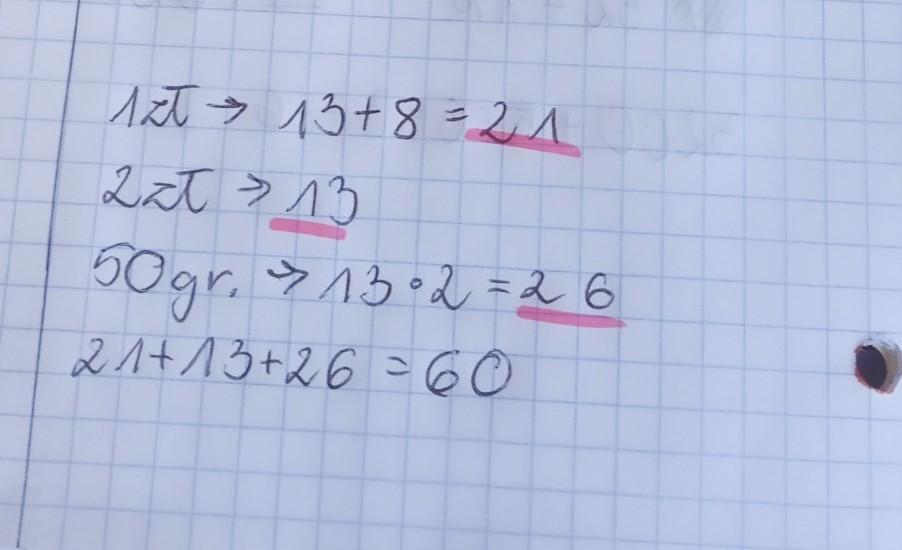 1zł → 13+8=21
2zł → 13
50gr. → 13·2=26
21+13+26=60